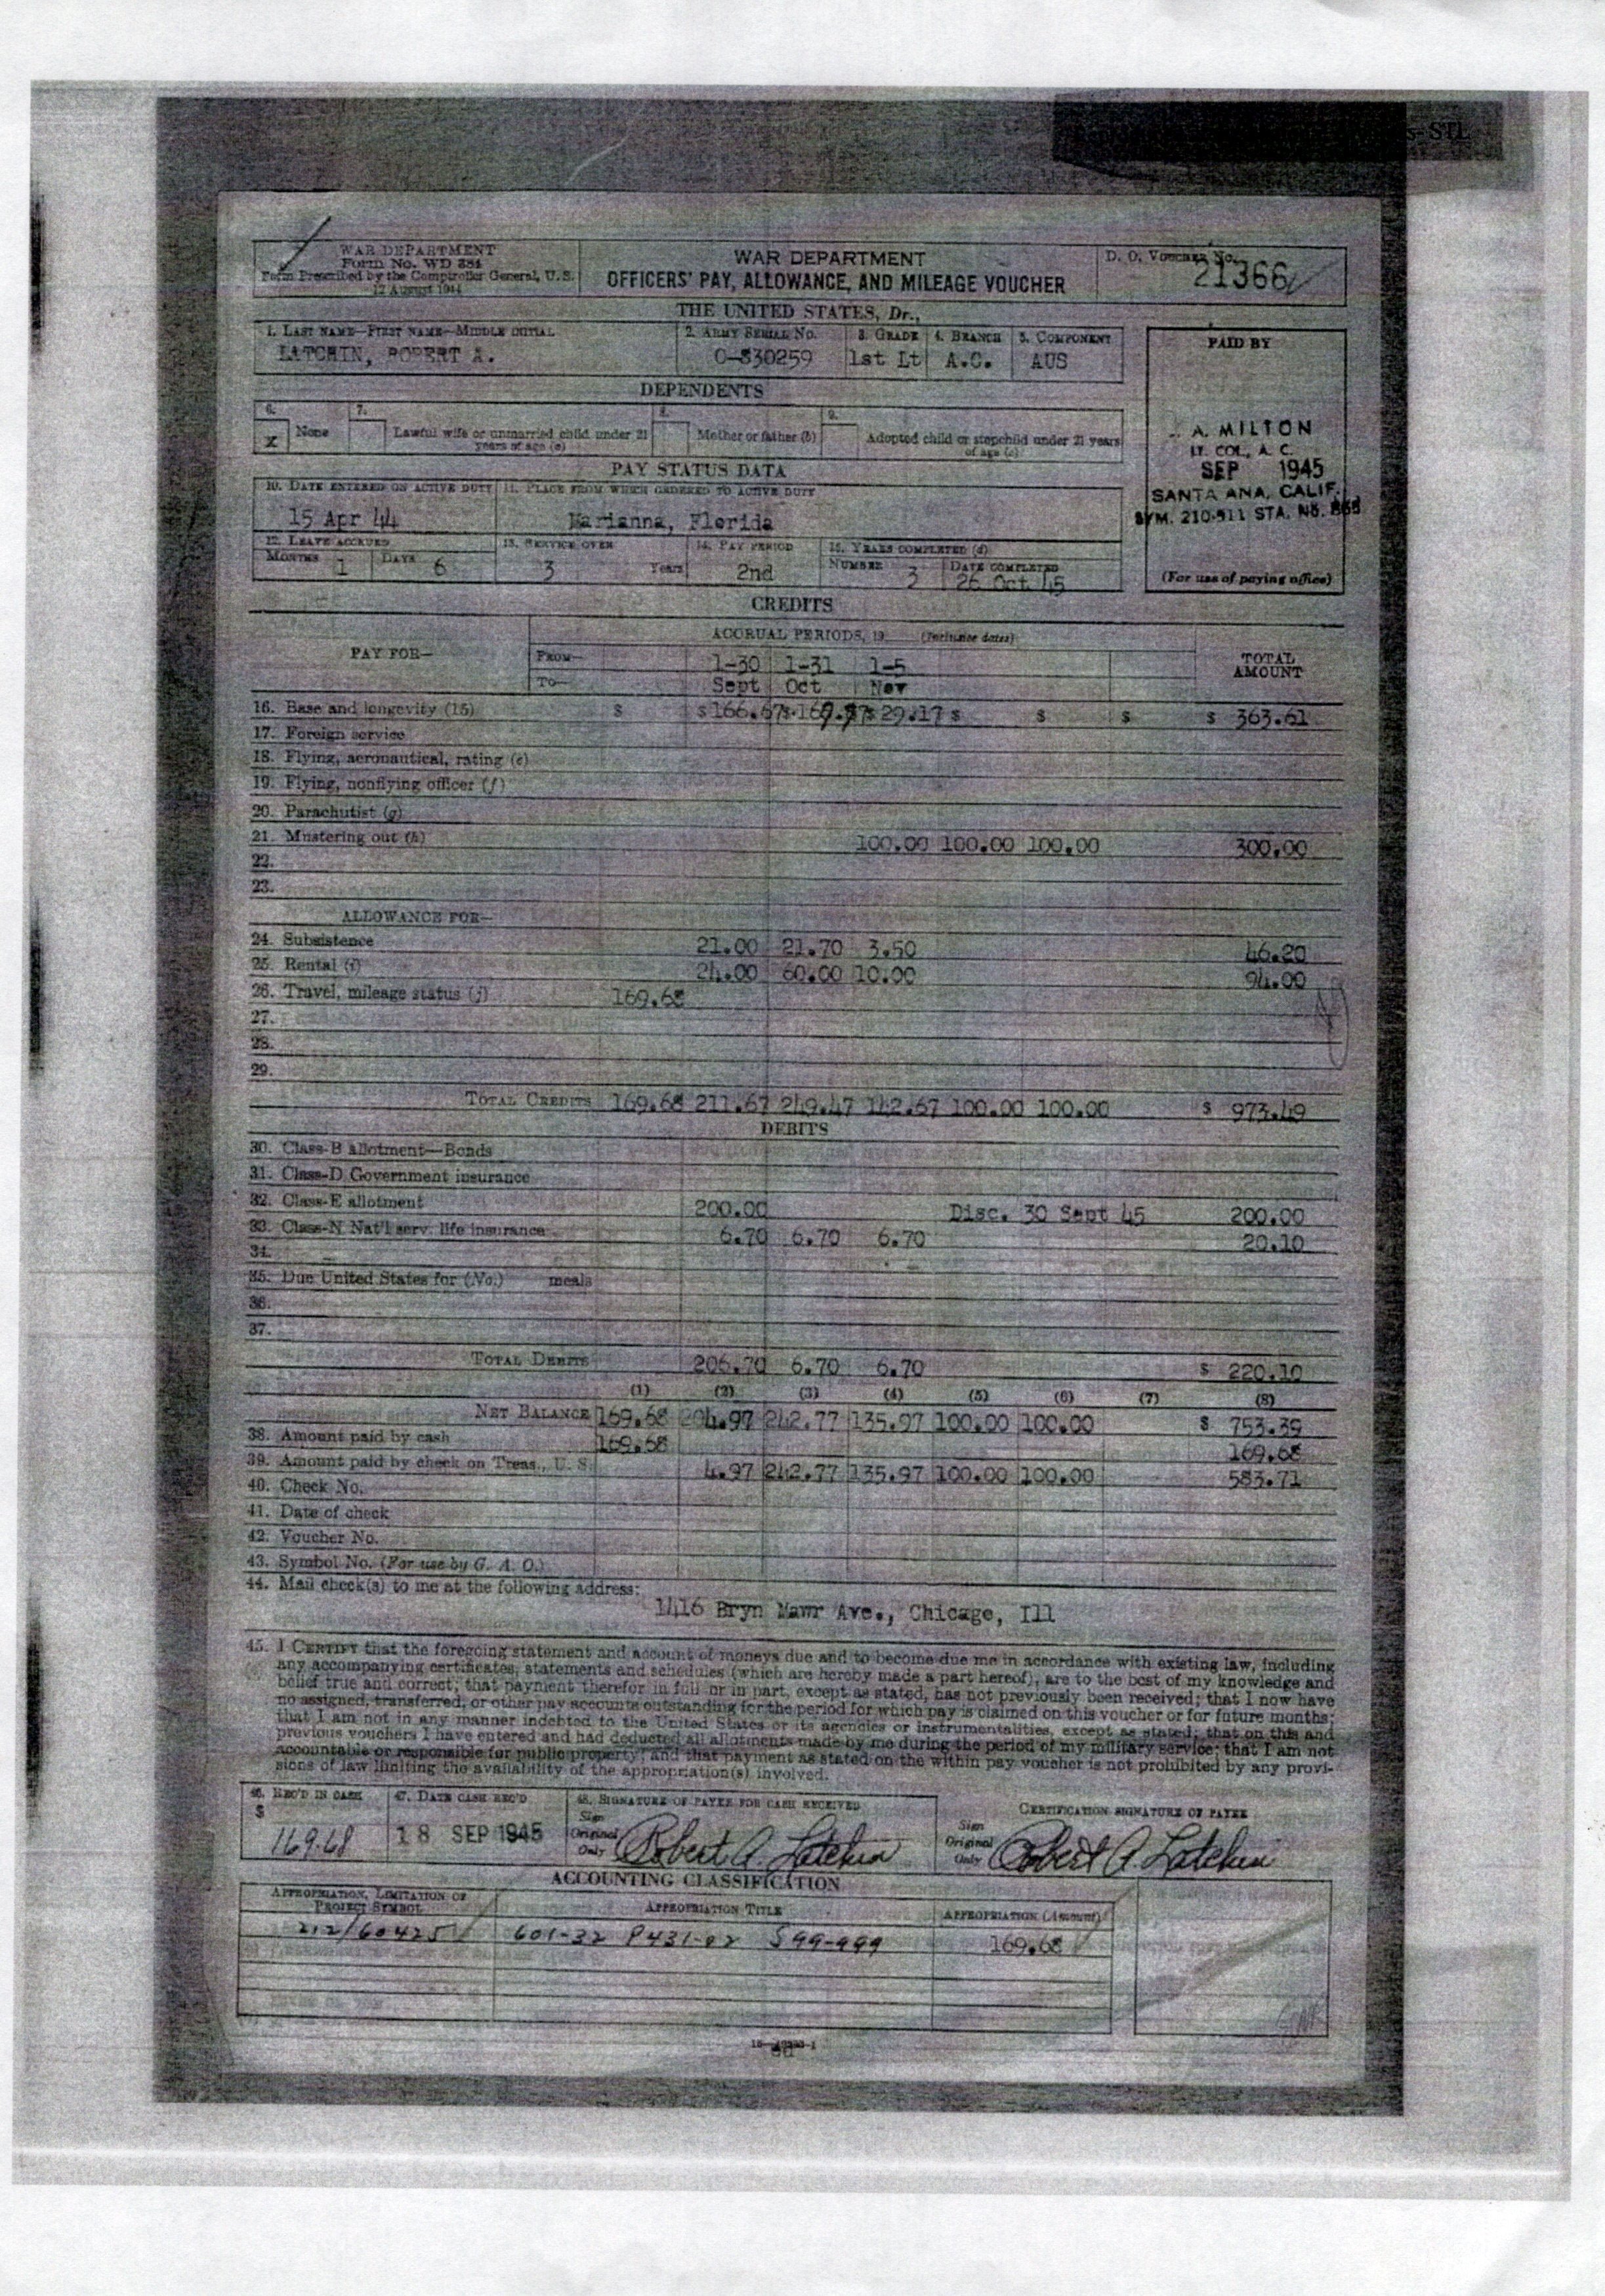 s-STL
WAR DEPARTMENT
Form No. WD 384
Form Prescribed by the Comptroller General, U. S.
12 August 1944
WAR DEPARTMENT
OFFICERS' PAY, ALLOWANCE, AND MILEAGE VOUCHER
D. O. Voucher No.
21366
THE UNITED STATES, Dr.,
1. LAST NAME—FIRST NAME—MIDDLE INITIAL 2. ARMY SERIAL NO. 3. GRADE 4. BRANCH 5. COMPONENT
LATCHIN, ROBERT A. O-830259 1st Lt A.C. AUS
PAID BY
A. MILTON
LT. COL., A. C.
SEP 1945
SANTA ANA, CALIF.
SYM. 210-511 STA. NO.
(For use of paying office)
DEPENDENTS
6. 7. 8. 9.
X None Lawful wife or unmarried child under 21 years of age (a) Mother or father (b) Adopted child or stepchild under 21 years of age (c)
PAY STATUS DATA
10. DATE ENTERED ON ACTIVE DUTY 11. PLACE FROM WHICH ORDERED TO ACTIVE DUTY
15 Apr 44 Marianna, Florida
12. LEAVE ACCRUED 13. SERVICE OVER 14. PAY PERIOD 15. YEARS COMPLETED (d)
MONTHS 1 DAYS 6 3 Years 2nd NUMBER 3 DATE COMPLETED 26 Oct 45
CREDITS
PAY FOR— ACCRUAL PERIODS, 19 (Inclusive dates) TOTAL AMOUNT
FROM— 1-30 1-31 1-5
TO— Sept Oct Nov
16. Base and longevity (15) $ $ 166.67 $ 29.17 $ $ $ $ 363.61
17. Foreign service
18. Flying, aeronautical, rating (e)
19. Flying, nonflying officer (f)
20. Parachutist (g)
21. Mustering out (h) 100.00 100.00 100.00 300.00
22.
23.
ALLOWANCE FOR—
24. Subsistence 21.00 21.70 3.50 46.20
25. Rental (i) 24.00 60.00 10.00 94.00
26. Travel, mileage status (j) 169.68
27.
28.
29.
TOTAL CREDITS 169.68 211.67 249.47 142.67 100.00 100.00 $ 973.49
DEBITS
30. Class-B allotment—Bonds
31. Class-D Government insurance
32. Class-E allotment 200.00 Disc. 30 Sept 45 200.00
33. Class-N Nat'l serv. life insurance 6.70 6.70 6.70 20.10
34.
35. Due United States for (No.) meals
36.
37.
TOTAL DEBITS 206.70 6.70 6.70 $ 220.10
(1) (2) (3) (4) (5) (6) (7) (8)
NET BALANCE 169.68 4.97 242.77 135.97 100.00 100.00 $ 753.39
38. Amount paid by cash 169.68 169.68
39. Amount paid by check on Treas., U. S. 4.97 242.77 135.97 100.00 100.00 583.71
40. Check No.
41. Date of check
42. Voucher No.
43. Symbol No. (For use by G. A. O.)
44. Mail check(s) to me at the following address:
1416 Bryn Mawr Ave., Chicago, Ill
45. I CERTIFY that the foregoing statement and account of moneys due and to become due me in accordance with existing law, including
any accompanying certificates, statements and schedules (which are hereby made a part hereof), are to the best of my knowledge and
belief true and correct; that payment therefor in full or in part, except as stated, has not previously been received; that I now have
no assigned, transferred, or other pay accounts outstanding for the period for which pay is claimed on this voucher or for future months;
that I am not in any manner indebted to the United States or its agencies or instrumentalities, except as stated; that on this and
previous vouchers I have entered and had deducted all allotments made by me during the period of my military service; that I am not
accountable or responsible for public property; and that payment as stated on the within pay voucher is not prohibited by any provi-
sions of law limiting the availability of the appropriation(s) involved.
46. REC'D IN CASH 47. DATE CASH REC'D 48. SIGNATURE OF PAYEE FOR CASH RECEIVED CERTIFICATION SIGNATURE OF PAYEE
$ 169.68 18 SEP 1945 Sign Original Only Robert A. Latchin Sign Original Only Robert A. Latchin
ACCOUNTING CLASSIFICATION
APPROPRIATION, LIMITATION OR PROJECT SYMBOL APPROPRIATION TITLE APPROPRIATION (Amount)
212/60425 601-32 P431-02 S99-999 169.68